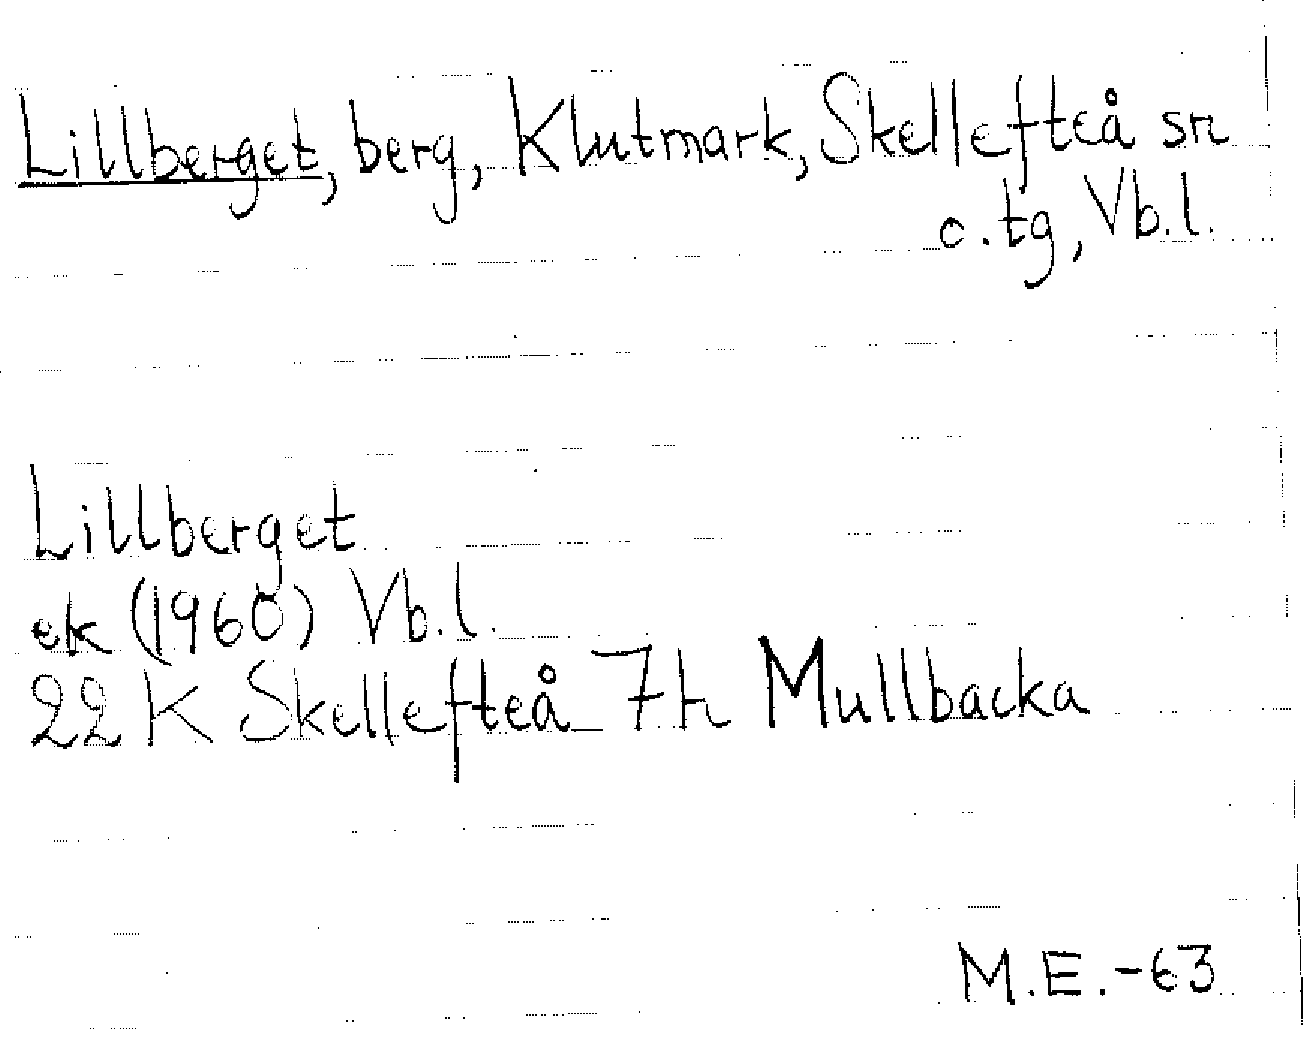 Lillberget, berg, Klutmark, Skellefteå sn
o. tg, Vb.l.
Lillberget
ek (1960) Vb.l.
22K Skellefteå 7h Mullbacka
M.E.-63